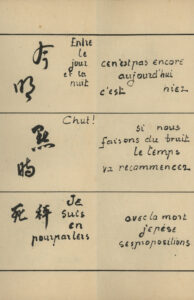 明
Entre
le
jour
et la
nuit
ce n'est pas encore
aujourd'hui
c'est hier
時
Chut!
si nous
faisons du bruit
le temps
va recommencer
死 秤
Je
suis
en
pourparlers
avec la mort
je pèse
ses propositions